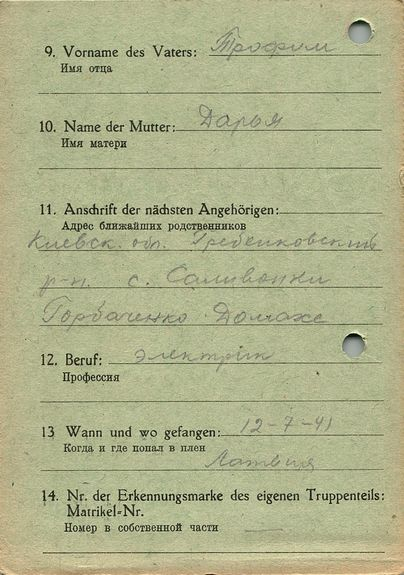 9. Vorname des Vaters: Трофим
Имя отца
10. Name der Mutter: Дарья
Имя матери
11. Anschrift der nächsten Angehörigen:
Адрес ближайших родственников
Киевск. обл. Гребенковский
р-н. с. Саливонки
Горбаченко
12. Beruf: электрик
Профессия
13 Wann und wo gefangen: 12-7-41
Когда и где попал в плен
Латвия
14. Nr. der Erkennungsmarke des eigenen Truppenteils:
Matrikel-Nr.
Номер в собственной части —